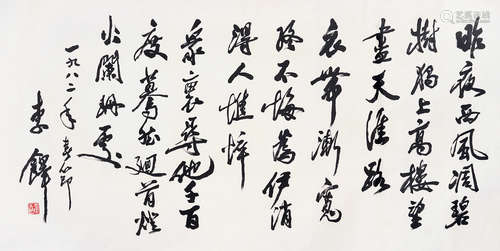 昨夜西風凋碧
樹獨上高樓望
盡天涯路
衣帶漸寬
終不悔為伊消
得人憔悴
衆裏尋他千百
度驀然廻首燈
火闌珊處
一九八二年春節
李鐸